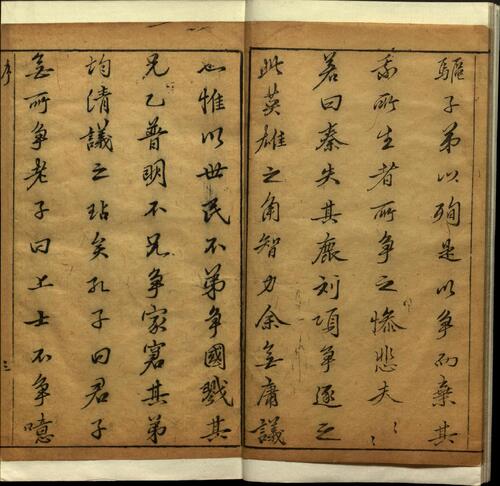 驅子弟以殉是以爭而棄其
所生者所爭之慘悲夫〻
若曰秦失其鹿刘項爭逐之
此英雄之角智力余無庸議
也惟以世民不弟爭國戮其
兄乙普明不兄爭家寃其弟
均清議之玷矣孔子曰君子
無所爭老子曰上士不爭噫
序
三